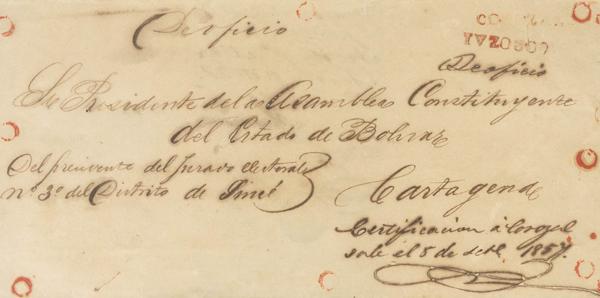 De oficio
COROZAL
De oficio
Sr Presidente de la Asamblea Constituyente
del Estado de Bolivar
Del presidente del Jurado electoral
nº 3º del Distrito de Sincé
Cartagena
Certificacion á Corozal
sale el 5 de setb 1857.